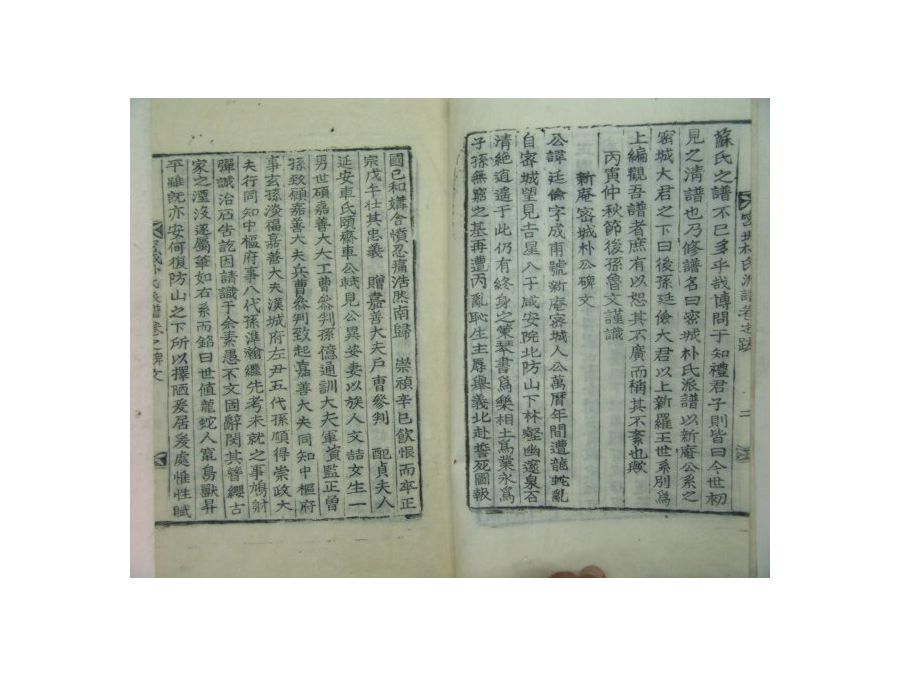 蘇氏之譜不已多乎哉博問于知禮君子則皆曰今世初
見之清譜也乃修譜名曰密城朴氏派譜以新庵公系之
密城大君之下曰後孫廷儉大君以上新羅王世系別爲
上編觀吾譜者庶有以恕其不廣而稱其不紊也歟
丙寅仲秋節後孫魯文謹識
新庵密城朴公碑文
公諱廷儉字成甫號新庵密城人公萬曆年間遭龍蛇亂
自密城望見吉星入于咸安院北防山下林壑幽邃泉石
清絶逍遥于此仍有終身之 琴書爲樂相土爲業永爲
子孫無窮之基再遭丙亂恥生主辱擧義北赴誓死圖報
國已和媾含憤忍痛浩然南歸 崇禎辛巳飮恨而卒正
宗戊午仕其忠義 贈嘉善大夫戶曹參判 配貞夫人
延安車氏頤齋車公軾見公異妥妻以族人文喆女生一
男世碩嘉善大工曹參判孫億通訓大夫軍資監正曾
孫致碩嘉善大夫兵曹參判致起嘉善大夫同知中樞府
事玄孫浚福嘉善大夫漢城府左尹五代孫順得崇政大
夫行同知中樞府事八代孫準瀚繼先考未就之事鳩財
彈誠治石告訖因請識于余素愚不文固辭閔其簪纓古
家之湮沒遂屬筆如右系而銘曰世値龍蛇人寃鳥獸昇
平雖旣亦安何復防山之下所以擇陋爰居爰處惟性賦
密城朴氏派譜卷之碑文